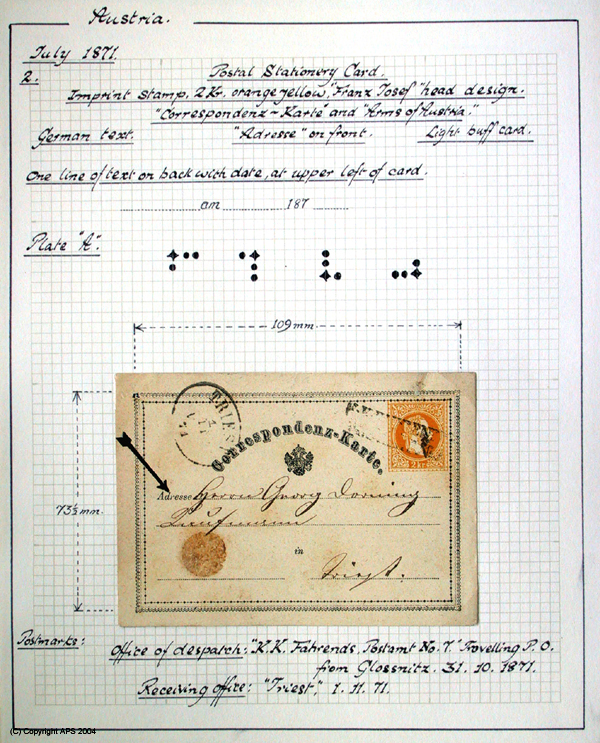 Austria.
July 1871.
2. Postal Stationery Card.
Imprint stamp, 2Kr. orange yellow, "Franz Josef" head design.
"Correspondenz-Karte" and "Arms of Austria."
German text. "Adresse" on front. Light buff card.
One line of text on back with date, at upper left of card.
am 187
Plate "A".
109 mm.
TRIEST
Correspondenz-Karte.
2 Kr.
73½ mm.
Adresse Herrn Georg
Kaufmann
in
Triest.
Postmarks: Office of despatch: "K.K. Fahrends. Postamt No. 7." Travelling P.O.
from Glossnitz. 31. 10. 1871.
Receiving office: "Triest," 1. 11. 71.
(C) Copyright APS 2004